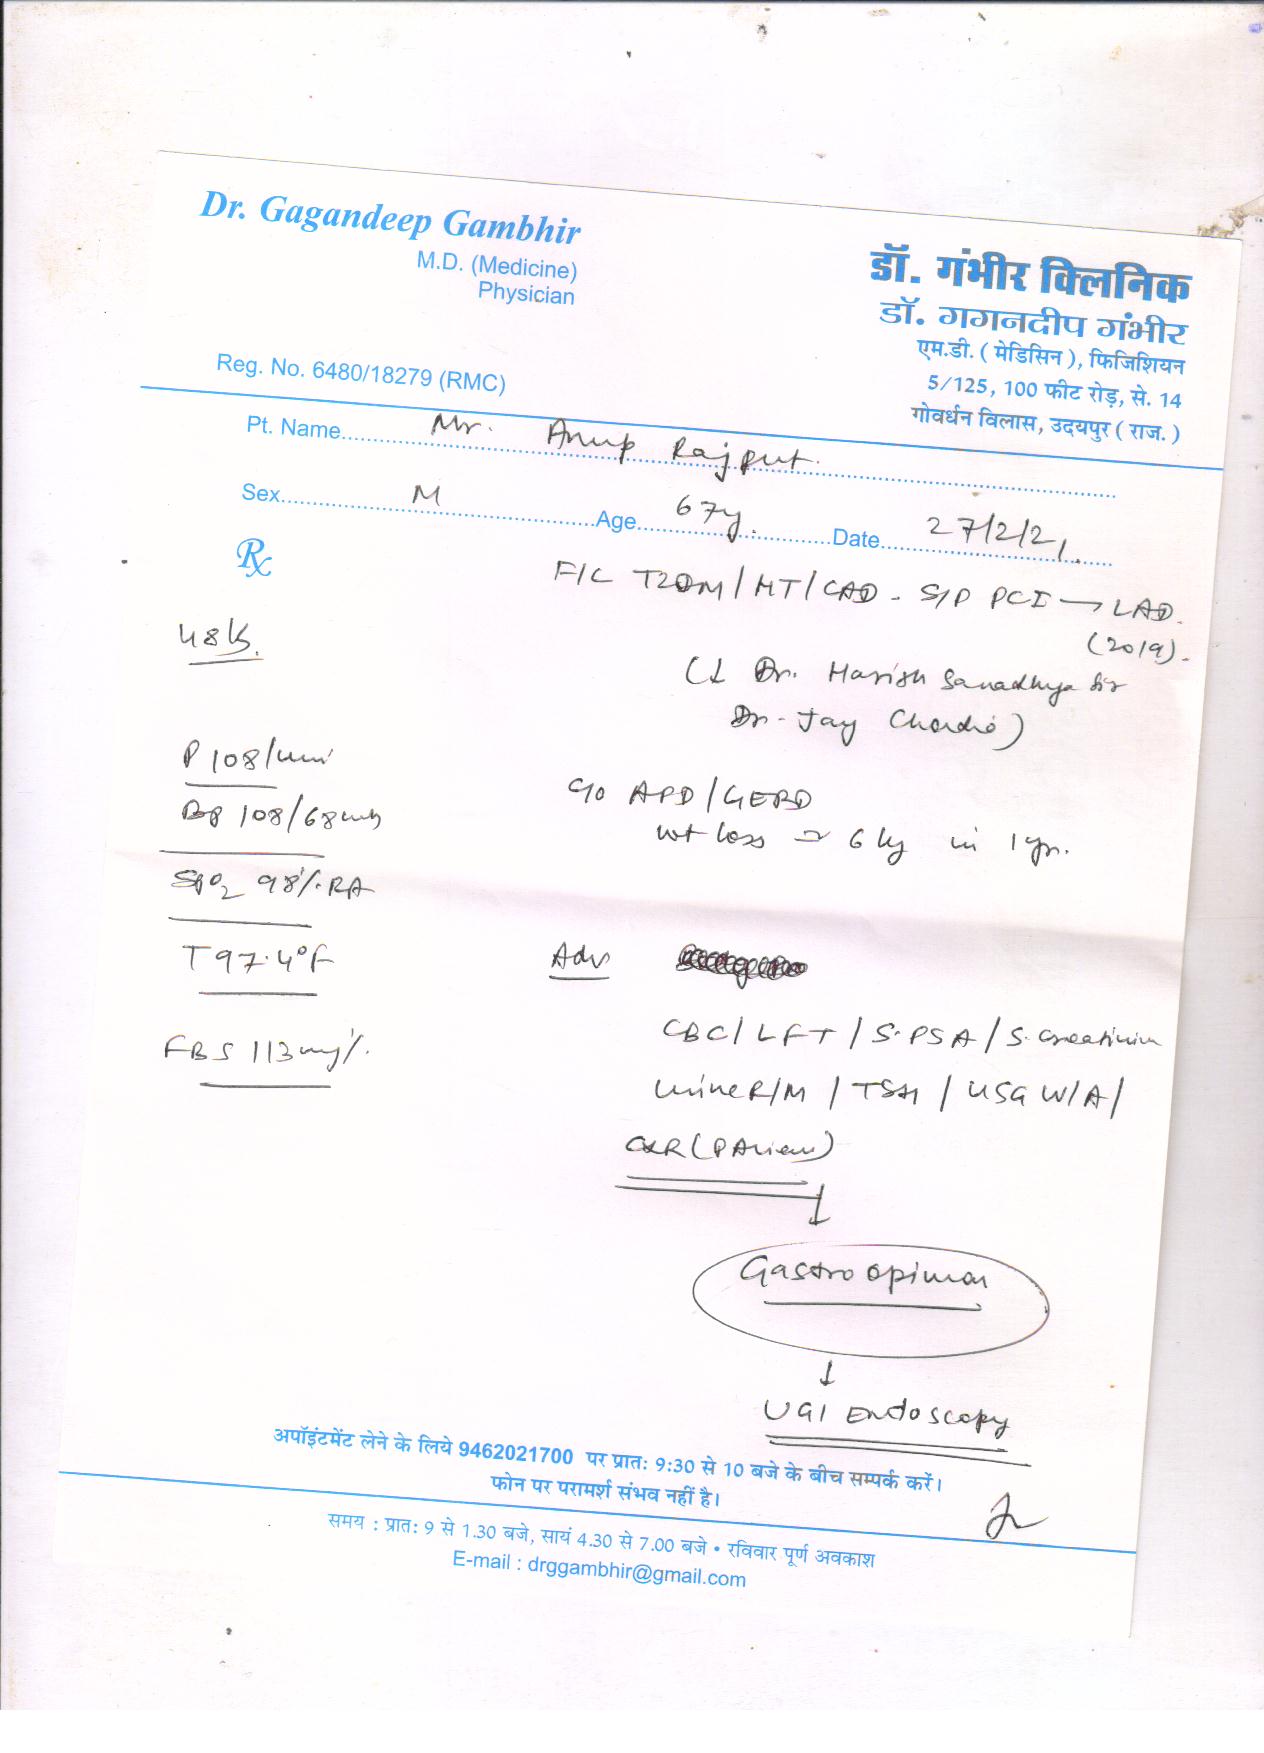 Dr. Gagandeep Gambhir
M.D. (Medicine)
Physician
Reg. No. 6480/18279 (RMC)
डॉ. गंभीर क्लिनिक
डॉ. गगनदीप गंभीर
एम.डी. ( मेडिसिन ), फिजिशियन
5/125, 100 फीट रोड़, से. 14
गोवर्धन विलास, उदयपुर ( राज. )
Pt. Name Mr. Anup Rajput.
Sex M Age 67y. Date 27/2/21.
Rx
F/C T2DM/HT/CAD - S/P PCI → LAD.
(2019).
48 kg.
Dr. Harish Sanadhya Sir
Dr. Jay
P 108/min
BP 108/68
SpO2 98% RA
T 97.4°F
FBS 113mg%.
C/o APD/GERD
wt loss 6 kg in 1 yr.
Adv
CBC/LFT/S.PSA/S.Creatinine
Urine R/M / TSH / USG W/A/
CXR (PA view)
↓
Gastro opinion
↓
UGI Endoscopy
अपॉइंटमेंट लेने के लिये 9462021700 पर प्रात: 9:30 से 10 बजे के बीच सम्पर्क करें।
फोन पर परामर्श संभव नहीं है।
समय : प्रात: 9 से 1.30 बजे, सायं 4.30 से 7.00 बजे • रविवार पूर्ण अवकाश
E-mail : drggambhir@gmail.com